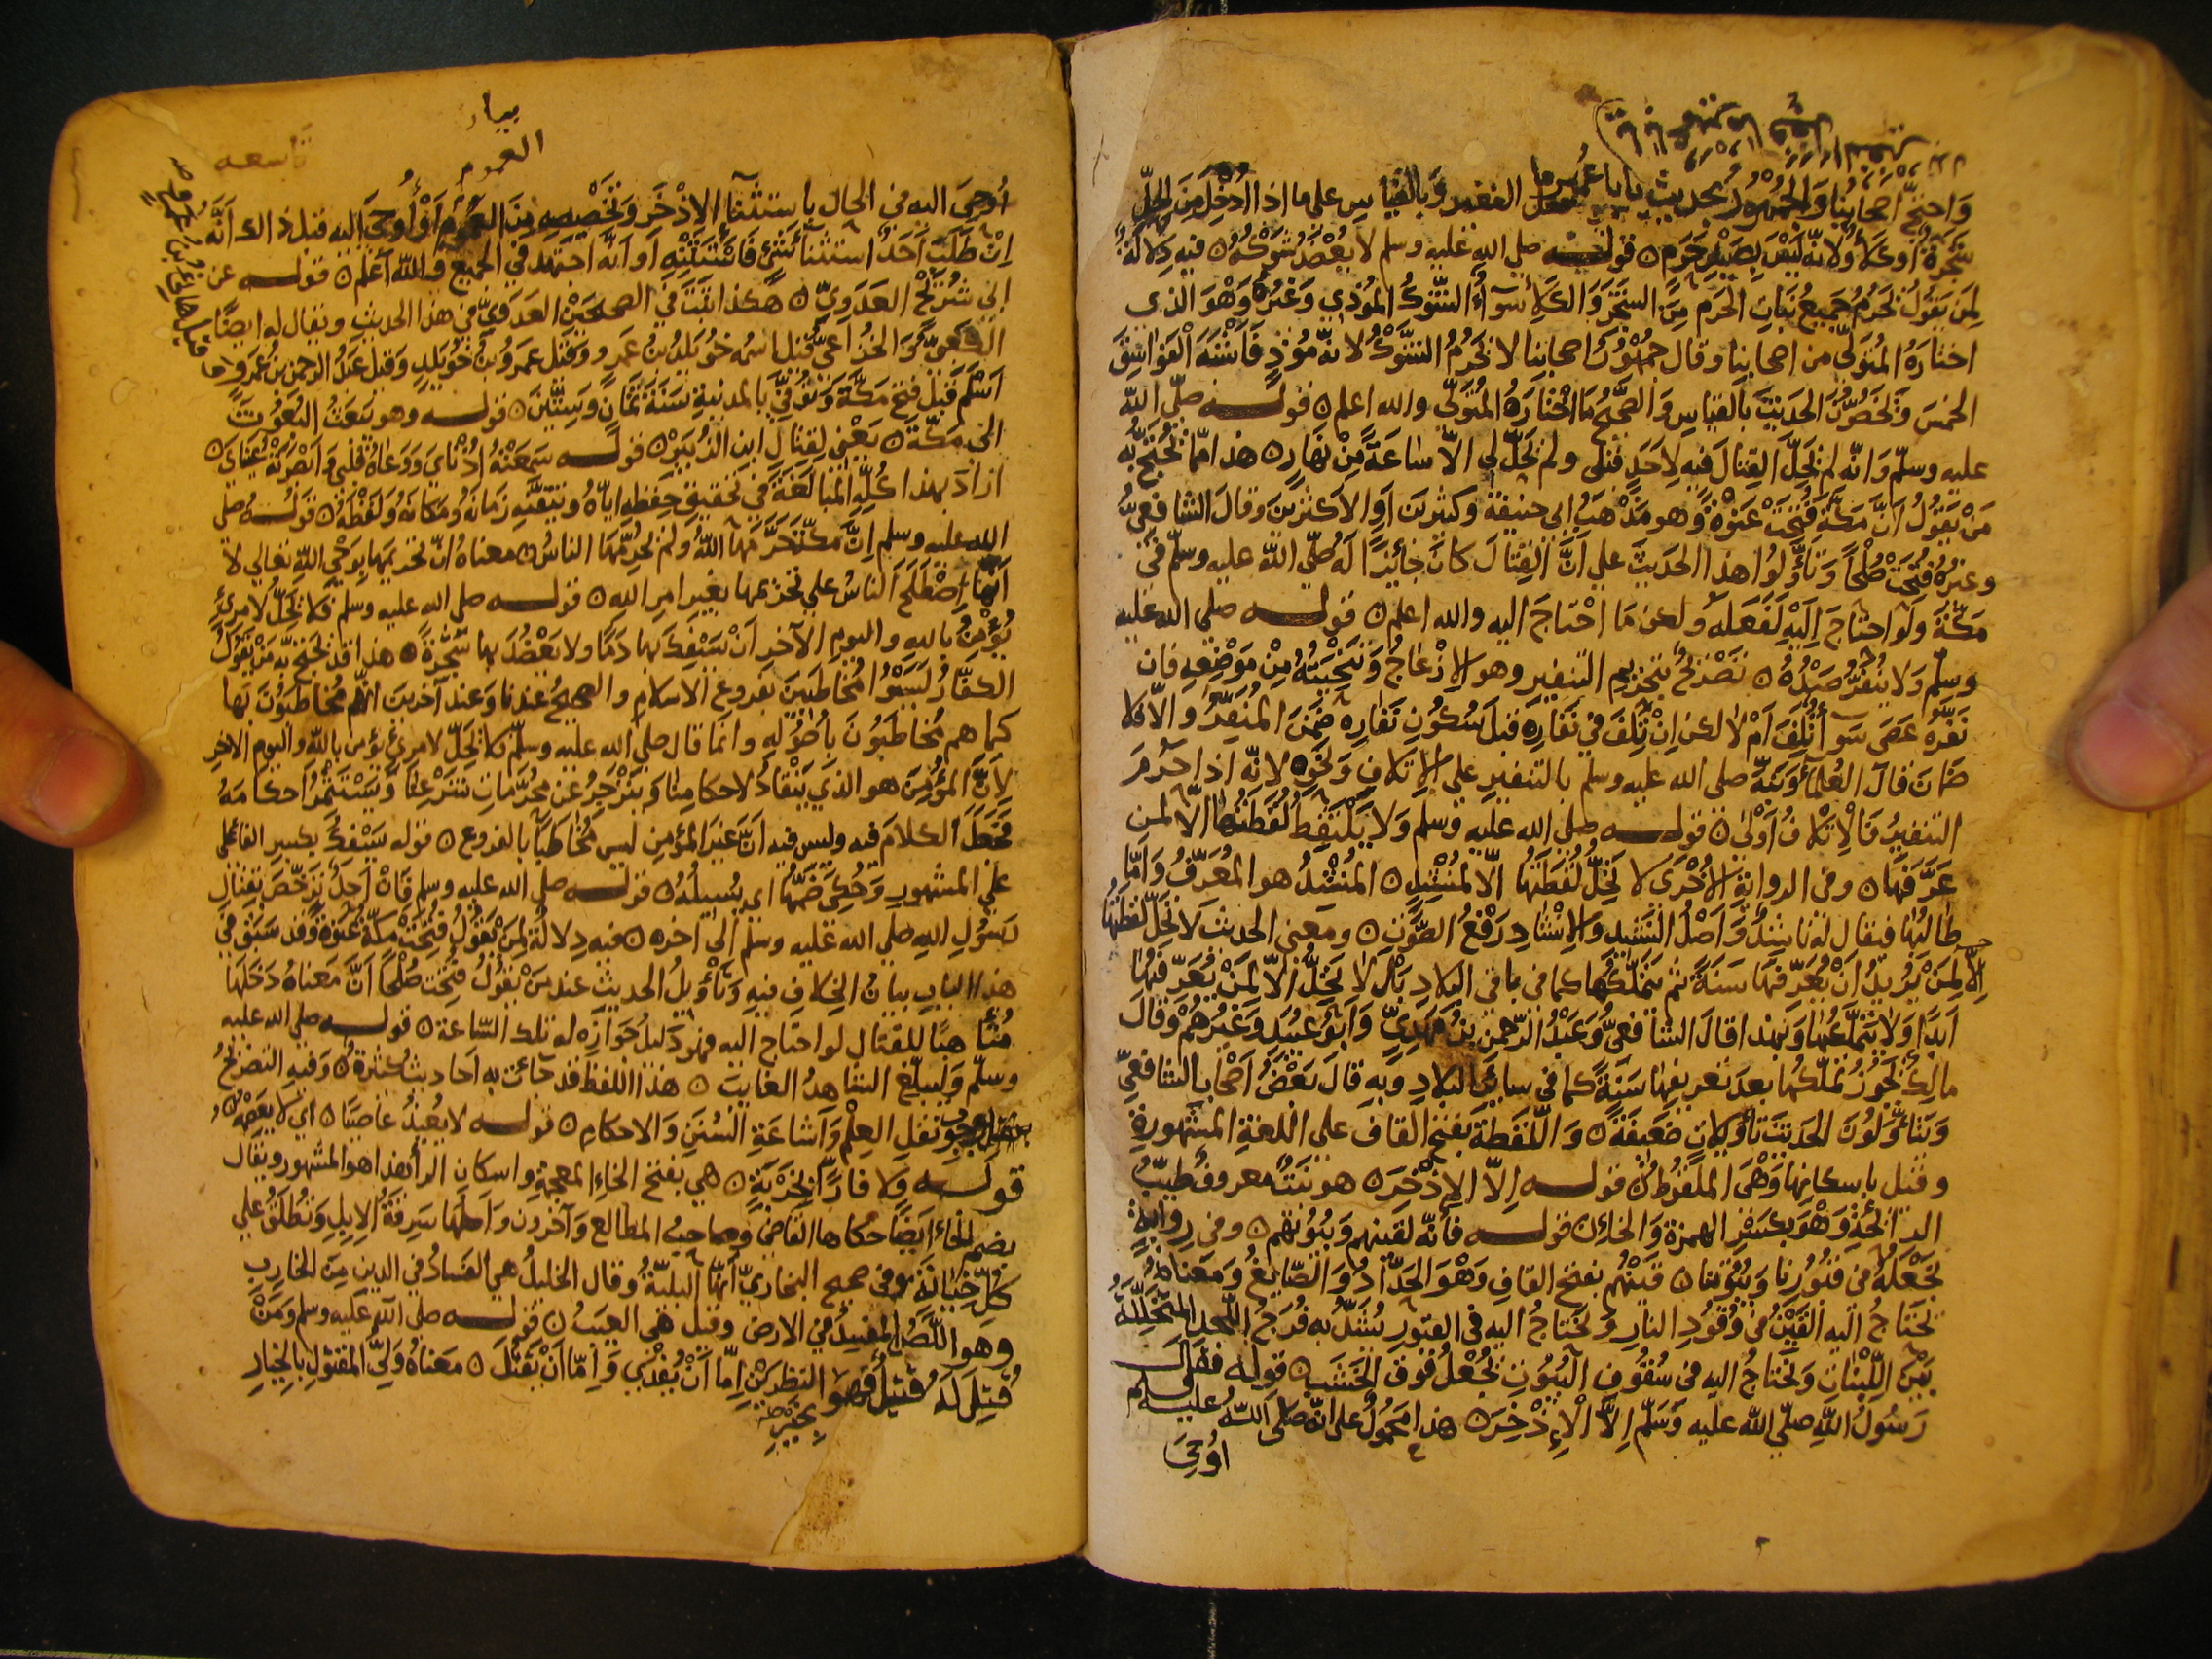 واحتج اصحابنا والجمهور بحديث يابا عمير ما فعل النغير وبالقياس على ما اذا ادخل من الحل
شجرة او كلأ ولانه ليس بصيد حرم ٥ قولــــه صلى الله عليه وسلم لا يعضد شوكه ٥ فيه دلالة
لمن يقول تحرم جميع نبات الحرم من الشجر والكلأ سوآء الشوك المؤذي وغيره وهو الذى
اختاره المتولي من اصحابنا وقال جمهور اصحابنا لا تحرم الشوك لانه مؤذ فاشبه الفواسق
الخمس وتخصون الحديث بالقياس والصحيح ما اختاره المتولى والله اعلم ٥ قولــــه صلى الله
عليه وسلم وانه لم تحل القتال فيه لاحد قبلى ولم تحل لي الا ساعة من نهار ٥ هذا مما تحتج به
من يقول ان مكة فتحت عنوة وهو مذهب ابى حنيفة وكثيرين او الاكثرين وقال الشافعى
وغيره فتحت صلحا وتأولوا هذا الحديث علي ان القتال كان جائزا له صلى الله عليه وسلم فى
مكة ولو احتاج اليه لفعله ولكن ما احتاج اليه والله اعلم ٥ قولــــه صلى الله عليه
وسلم ولا ينفر صيده ٥ تصرح بتحريم التنفير وهو الازعاج وتنحيته من موضعه فان
نفره عصى سوا أتلف ام لا لكن ان تلف في نفاره قبل سكون نفاره ضمن المنفر والا فلا
ضمان قال العلما ونبه صلى الله عليه وسلم بالتنفير على الاتلاف ونحوه لانه اذا حرم
التنفير فالاتلاف أولى ٥ قولــــه صلى الله عليه وسلم ولا يلتقط لقطتها الا لمن
عرفها ٥ وفى الرواية الاخرى لا تحل لقطتها الا لمنشد ٥ المنشد هو المعرف واما
طالبها فيقال له ناشد واصل النشد والانشاد رفع الصوت ٥ ومعنى الحديث لا تحل لقطتها
الا لمن يريد ان يعرفها سنة ثم يتملكها كما فى باقي البلاد بل لا تحل الا لمن يعرفها
ابدا ولا يتملكها وبهذا قال الشافعى وعبد الرحمن بن مهدى وابو عبيد وغيرهم وقال
مالك تجوز تملكها بعد تعريفها سنة كما فى سائر البلاد وبه قال بعض اصحاب الشافعى
ويتأولون الحديث تأويلات ضعيفة ٥ واللقطة بفتح القاف على اللغة المشهورة
وقيل باسكانها وهى الملقوط ٥ قولــــه الا الاذخر ٥ هو نبت معروف طيب
الرائحة وهو بكسر الهمزة والخاء ٥ قولــــه فانه لقينهم وبيوتهم ٥ وفى رواية
نجعله فى قبورنا وبيوتنا ٥ قينهم بفتح القاف وهو الحداد والصايغ ومعناه
تحتاج اليه القين فى وقود النار وتحتاج اليه فى القبور تسد به فرج اللحد المتخللة
بين اللبنات وتحتاج اليه فى سقوف البيوت تجعل فوق الخشب ٥ قوله فقال
رسول الله صلى الله عليه وسلم الا الاذخر ٥ هذا محمول على انه صلى الله عليه وسلم
اوحى
بيان
العموم
تاسعه
اوحى اليه فى الحال باستثنآ الاذخر وتخصيصه من العموم او أوحى اليه قبل ذالك انه
ان طلب احد استثنا شئ فاستثنه او انه اجتهد في الجميع والله اعلم ٥ قولــــه عن
ابى شريح العدوى ٥ هكذا ثبت في الصحيحين العدوي فى هذا الحديث ويقال له ايضا
الكعبى والخزاعى قيل اسمه خويلد بن عمرو وقيل عمرو بن خويلد وقيل عبد الرحمن بن عمرو
وقيل هانئ بن عمرو
اسلم قبل فتح مكة وتوفى بالمدينة سنة ثمان وستين ٥ قولــــه وهو يبعث البعوث
الى مكة ٥ يعنى لقتال ابن الزبير ٥ قولــــه سمعته اذناي ووعاه قلبى وابصرته عيناي ٥
اراد بهذا كله المبالغة في تحقيق حفظه اياه وتيقنه زمانه ومكانه ولفظه ٥ قولــــه صلى
الله عليه وسلم ان مكة حرمها الله ولم تحرمها الناس ٥ معناه ان تحريمها بوحي الله تعالى لا
انها اصطلح الناس على تحريمها بغير امر الله ٥ قولــــه صلى الله عليه وسلم فلا تحل لامرئ
يؤمن بالله واليوم الآخر ان يسفك بها دما ولا يعضد بها شجرة ٥ هذا قد تحتج به من يقول
الكفار ليسوا مخاطبين بفروع الاسلام والصحيح عندنا وعند آخرين انهم مخاطبون بها
كما هم مخاطبون باصوله وانما قال صلى الله عليه وسلم فلا تحل لامرئ يؤمن بالله واليوم الاخر
لان المؤمن هو الذي ينقاد لاحكامنا وينزجر عن محرمات شرعنا ويستثمر احكامه
فجعل الكلام فيه وليس فيه ان غير المؤمن ليس مخاطبا بالفروع ٥ قوله يسفك بكسر الفا على
علي المشهور وحكى ضمها اى يسيله ٥ قولــــه صلى الله عليه وسلم فان احد ترخص بقتال
رسول الله صلى الله عليه وسلم الى اخره ٥ فيه دلالة لمن يقول فتحت مكة عنوة وقد سبق في
هذا الباب بيان الخلاف فيه وتأويل الحديث عند من يقول فتحت صلحا ان معناه دخلها
متأهبا للقتال لو احتاج اليه فهو دليل جوازه له تلك الساعة ٥ قولــــه صلى الله عليه
وسلم وليبلغ الشاهد الغايب ٥ هذا اللفظ قد جاءت به احاديث كثيرة ٥ وفيه التصرح
بوجوب نقل العلم واشاعة السنن والاحكام ٥ قولــــه لا يعيذ عاصيا ٥ اي لا يعصمه ٥
قولــــه ولا فارا بخربة ٥ هي بفتح الخاء المعجمة واسكان الرأ هذا هو المشهور ويقال
بضم الخاء ايضا حكاها القاضى وصاحب المطالع وآخرون واصلها سرقة الابل وتطلق على
كل خيانة وفى صحيح البخارى انها البلية وقال الخليل هى الفساد في الدين من الخارب
وهو اللص المفسد فى الارض وقيل هى العيب ٥ قولــــه صلى الله عليه وسلم ومن
قتل له قتيل فهو بخير النظرين اما ان يفدي واما ان يقتل ٥ معناه ولي المقتول بالخيار